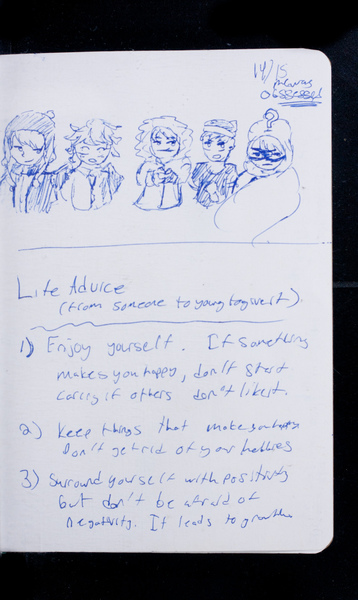 14/15
always
obsessed!
?
Life Advice
(from someone to young to give it).
1) Enjoy yourself. If something
makes you happy, don't start
caring if others don't like it.
2) Keep things that make you happy
Don't get rid of your hobbies
3) Surround yourself with positivity
but don't be afraid of
negativity. It leads to growth